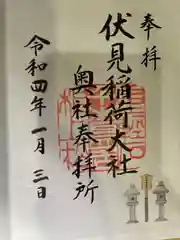 奉拝
伏見稲荷大社
奥社奉拝所
令和四年一月三日